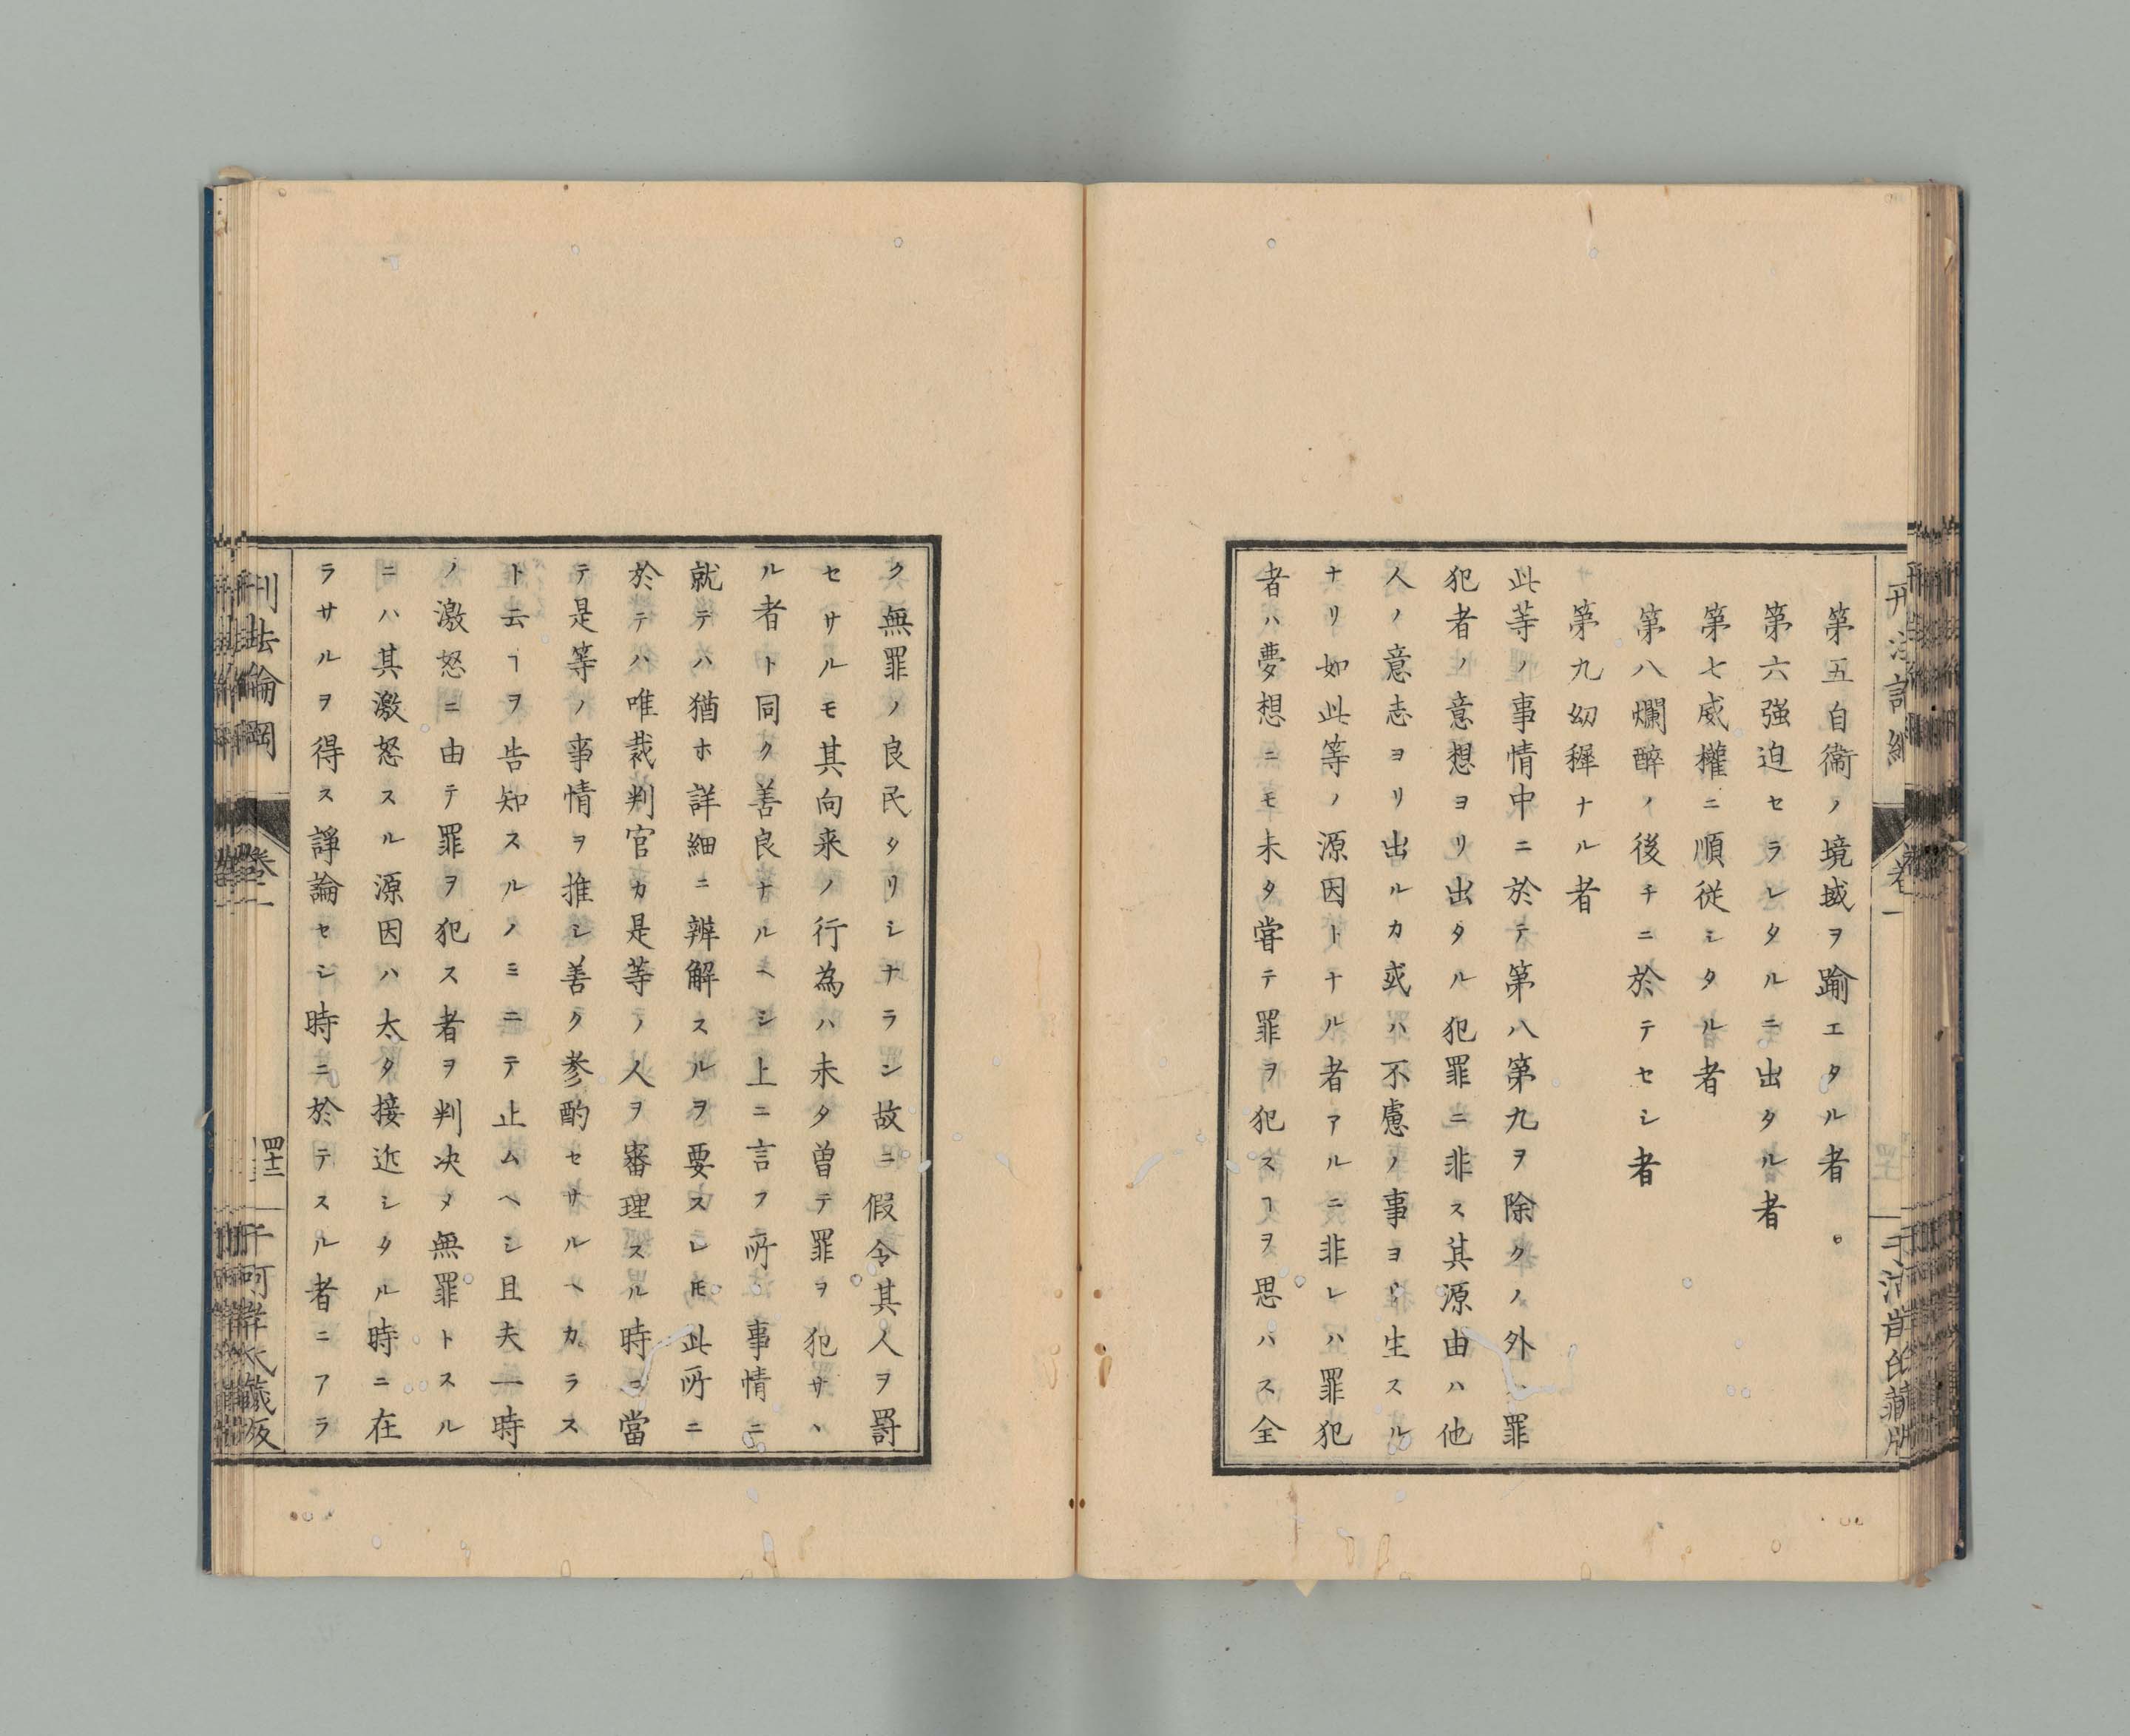 第五自衞ノ境域ヲ踰エタル者。
第六強迫セラレタルニ出タル者
第七威權ニ順從シタル者
第八爛醉ノ後チニ於テセシ者
第九幼穉ナル者
此等ノ事情中ニ於テ第八第九ヲ除クノ外ハ罪
犯者ノ意想ヨリ出タル犯罪ニ非ス其源由ハ他
人ノ意志ヨリ出ルカ或ハ不慮ノ事ヨリ生スル
ナリ如此等ノ源因トナル者アルニ非レハ罪犯
者ハ夢想ニモ未タ甞テ罪ヲ犯スヿヲ思ハス全
ク無罪ノ良民タリシナラン故ニ假令其人ヲ罸
セサルモ其向来ノ行為ハ未タ曽テ罪ヲ犯サヽ
ル者ト同ク善良ナルヘシ上ニ言フ所ノ事情ニ
就テハ猶ホ詳細ニ辨解スルヲ要スレ𪜈此所ニ
於テハ唯裁判官カ是等ノ人ヲ審理スル時ニ當
テ是等ノ事情ヲ推シ善ク参酌セサルヘカラス
ト云ヿヲ告知スルノミニテ止ムヘシ且夫一時
ノ激怒ニ由テ罪ヲ犯ス者ヲ判决メ無罪トスル
ニハ其激怒スル源因ハ太タ接近シタル時ニ在
ラサルヲ得ス諍論セシ時ニ於テスル者ニアラ
刑法論綱
卷一